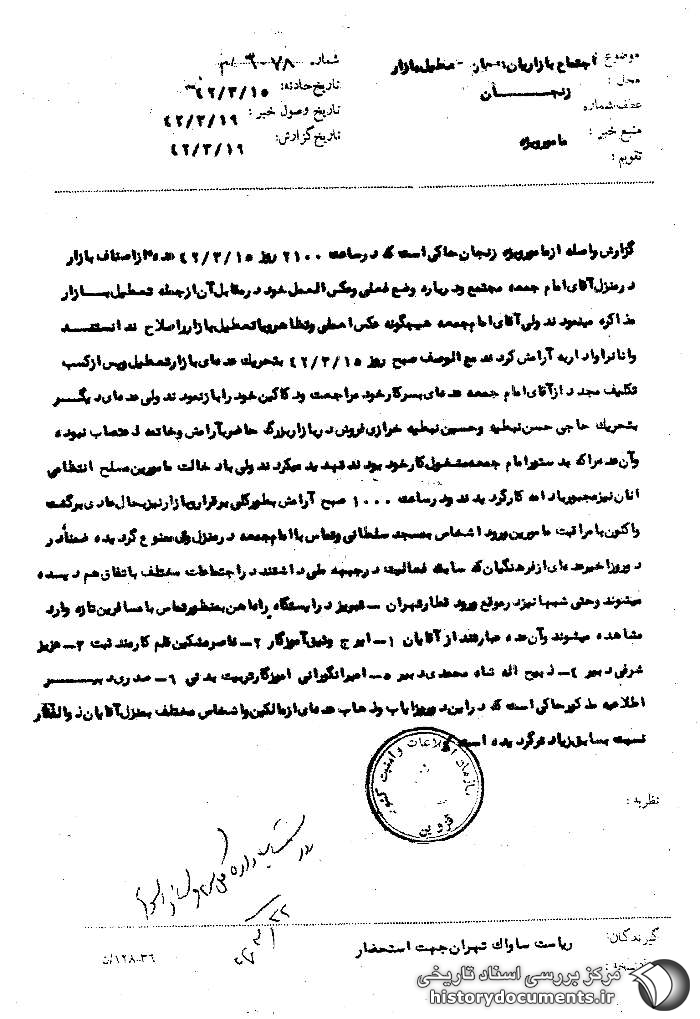 موضوع : اجتماع بازاریان زنجان - تعطیل بازار
شماره ۳۰۷۸
محل : زنجان
تاریخ حادثه: ۴۲/۳/۱۵
عطف شماره
تاریخ وصول خبر : ۴۲/۳/۱۹
منبع خبر : مامور ویژه
تاریخ گزارش: ۴۲/۳/۱۹
تقویم :
گزارش واصله از مامور ویژه زنجان حاکی است که در ساعت ۲۱۰۰ روز ۴۲/۳/۱۵ عده از اصناف بازار
در منزل آقای امام جمعه مجتمع و درباره وضع فعلی و عکس العمل خود در مقابل آن از جمله تعطیل بازار
مذاکره مینمودند ولی آقای امام جمعه هیچگونه عکس العملی و تظاهر و یا تعطیل بازار را صلاح ندانستند
و آنان را وادار به آرامش کردند مع الوصف صبح روز ۴۲/۳/۱۵ بتحریک عده ای بازار تعطیل و پس از کسب
تکلیف مجدد از آقای امام جمعه عده ای بسر کار خود مراجعت و دکاکین خود را باز نمودند ولی عده ای دیگر
بتحریک حاجی حسن نبطیه و حسین نبطیه خرازی فروش در بازار بزرگ حاضر بآرامش و خاتمه اعتصاب نبوده
و آن عده را که بدستور امام جمعه مشغول کار خود بودند تهدید میکردند ولی با دخالت مامورین مسلح انتظامی
آنان نیز مجبور بادامه کار گردیدند و در ساعت ۱۰۰۰ صبح آرامش بطور کلی برقرار و بازار نیز بحال عادی برگشت
و اکنون با مراقبت مامورین ورود اشخاص بمسجد سلطانی و تماس با امام جمعه در منزل وی ممنوع گردیده ضمناً در
دو روز اخیر عده ای از فرهنگیان که سابقه فعالیت در جبهه ملی داشتند در اجتماعات مختلف باتفاق هم دیده
میشوند و حتی شبها نیز در موقع ورود قطار تهران - تبریز در ایستگاه راه آهن بمنظور تماس با مسافرین تازه وارد
مشاهده میشوند و آن عده عبارتند از آقایان ۱- ایرج وثیق آموزگار ۲- ناصر مشکین قلم کارمند ثبت ۳- عزیز
شرفی دبیر ۴- ذبیح اله شاه محمدی دبیر ۵- امیر انگورانی آموزگار تربیت بدنی ۶- صدری دبیر
اطلاعیه مذکور حاکی است که در این دو روز ایاب و ذهاب عده ای از مالکین و اشخاص مختلف بمنزل آقایان ذوالفقار
نسبت بسابق زیادتر گردیده است
سازمان اطلاعات و امنیت کشور
قزوین
نظریه :
گیرندگان: ریاست ساواک تهران جهت استحضار
۱۲۸-۳۶/ت
مرکز بررسی اسناد تاریخی
historydocuments.ir